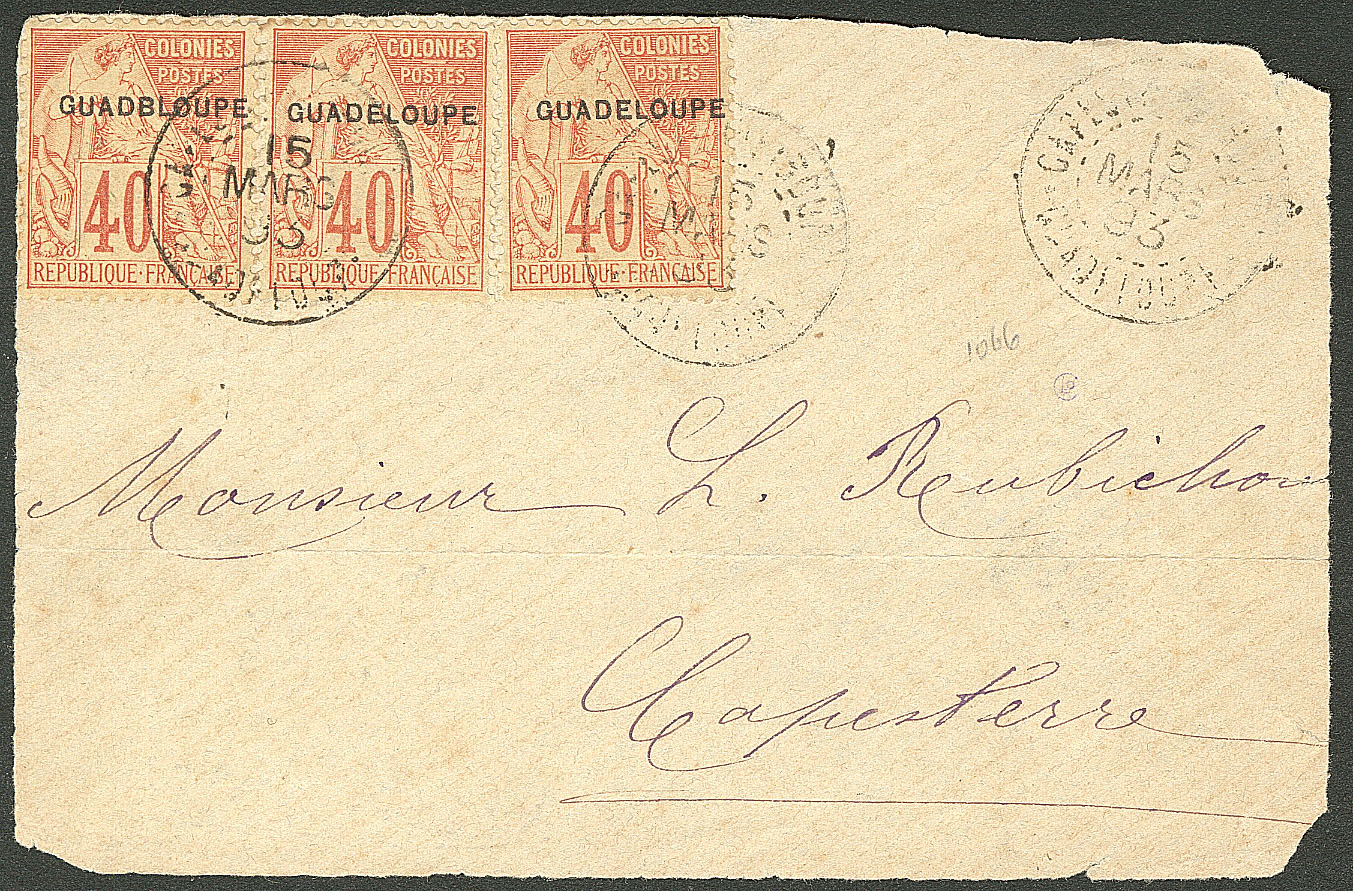 COLONIES COLONIES COLONIES
POSTES POSTES POSTES
GUADBLOUPE GUADELOUPE GUADELOUPE
40 40 40
REPUBLIQUE·FRANÇAISE REPUBLIQUE·FRANÇAISE REPUBLIQUE·FRANÇAISE
15
MARS
93
15
MARS
15
MARS
93
1066
Monsieur L. Rubichon
Capesterre